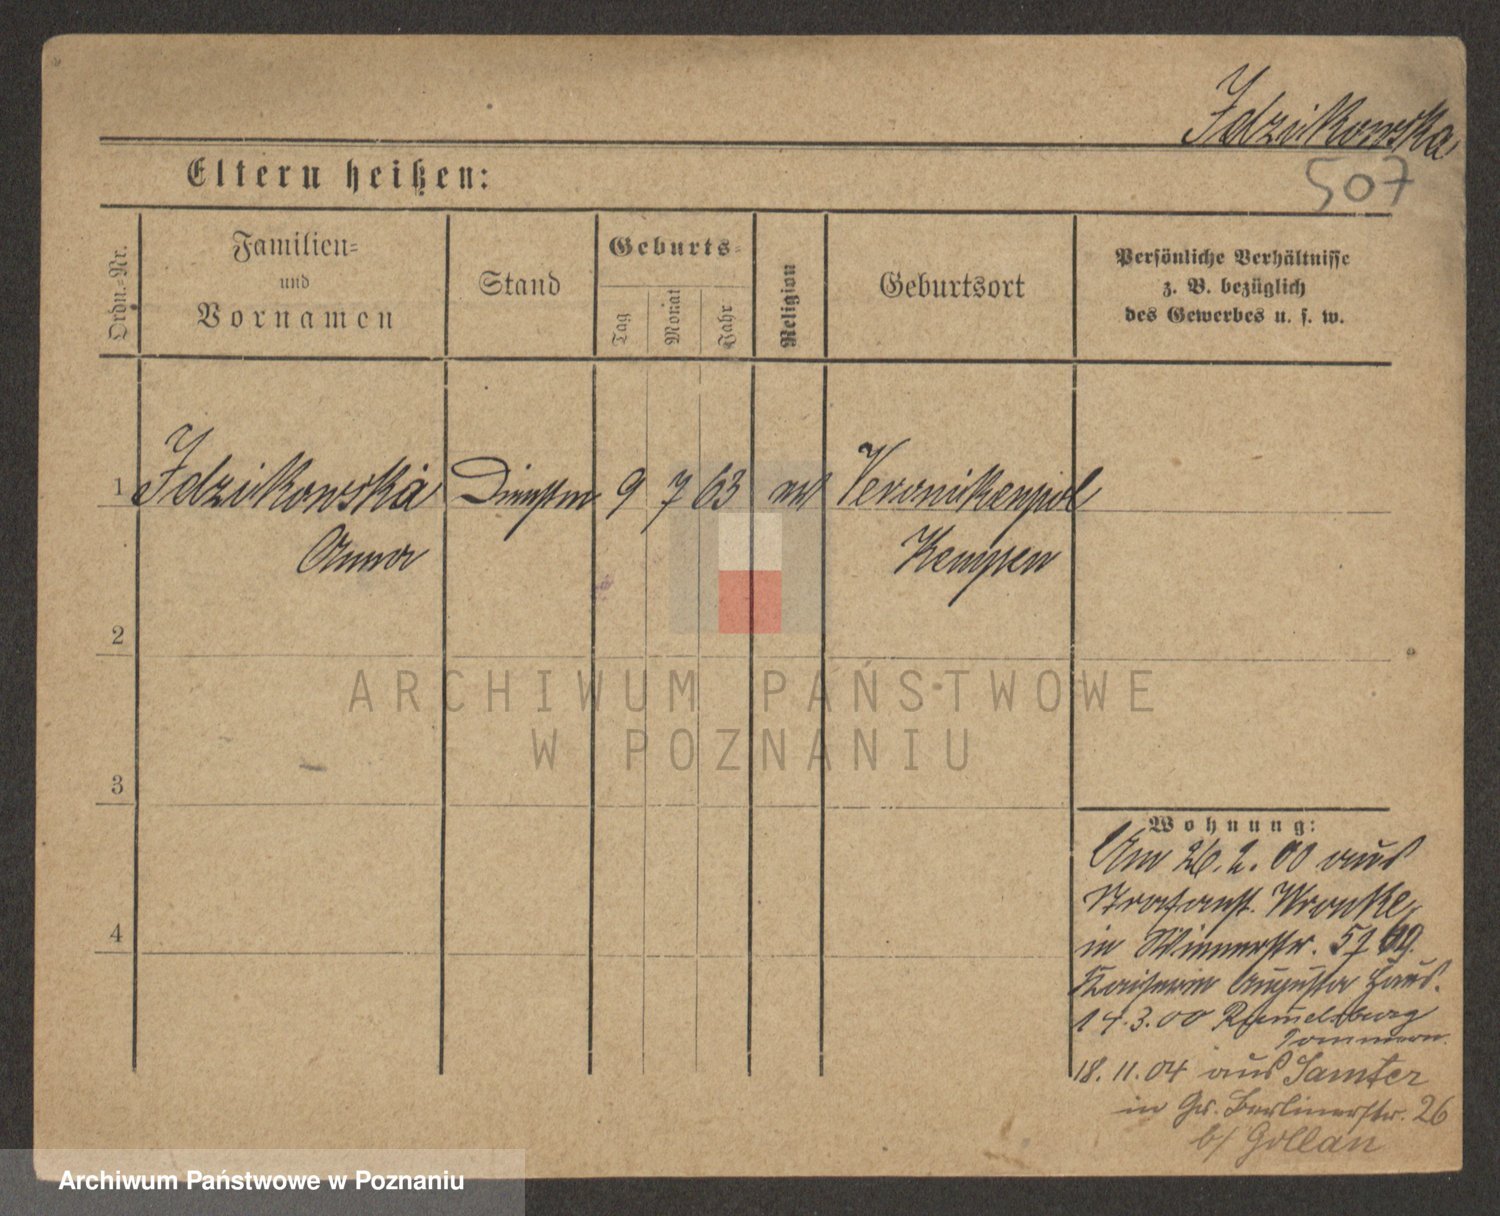 Idzikowska
507
Eltern heißen:
Ordn.-Nr.
Familien-
und
Vornamen
Stand
Geburts-
Tag
Monat
Jahr
Religion
Geburtsort
Persönliche Verhältnisse
z. B. bezüglich
des Gewerbes u. s. w.
1 Idzikowska 9 7 63
Anna Kempen
2
3
4
ARCHIWUM PAŃSTWOWE
W POZNANIU
Wohnung:
Am 26.2.00 aus
Strafanst. Wronke
in Wienerstr.
Kaiserin Augusta Haus.
14.3.00 Rummelsburg
Pommern.
18.11.04 aus Samter
in Gr. Berlinerstr. 26
b/ Gollan
Archiwum Państwowe w Poznaniu